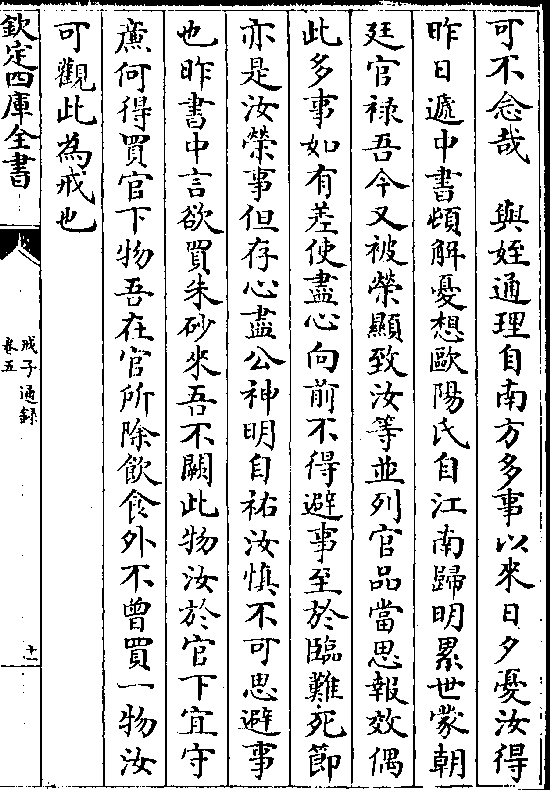 可不念哉　與姪通理自南方多事以來日夕憂汝得
昨日遞中書頓解憂想歐陽氏自江南歸明累世蒙朝
廷官禄吾今又被榮顯致汝等並列官品當思報效偶
此多事如有差使盡心向前不得避事至於臨難死節
亦是汝榮事但存心盡公神明自祐汝慎不可思避事
也昨書中言欲買朱砂來吾不闕此物汝於官下宜守
廉何得買官下物吾在官所除飲食外不曾買一物汝
可觀此為戒也
欽定四庫全書
戒子通録
卷五
十一